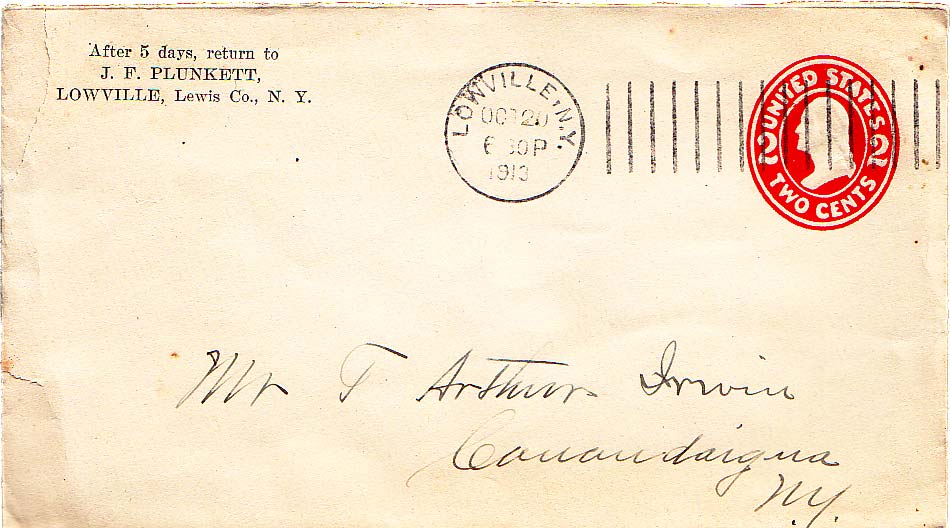 After 5 days, return to
J. F. PLUNKETT,
LOWVILLE, Lewis Co., N. Y.
LOWVILLE, N.Y.
OCT 20
6 30 P
1913
UNITED STATES
2 2
TWO CENTS
Mr T Arthur Irwin
Canandaigua
N.Y.